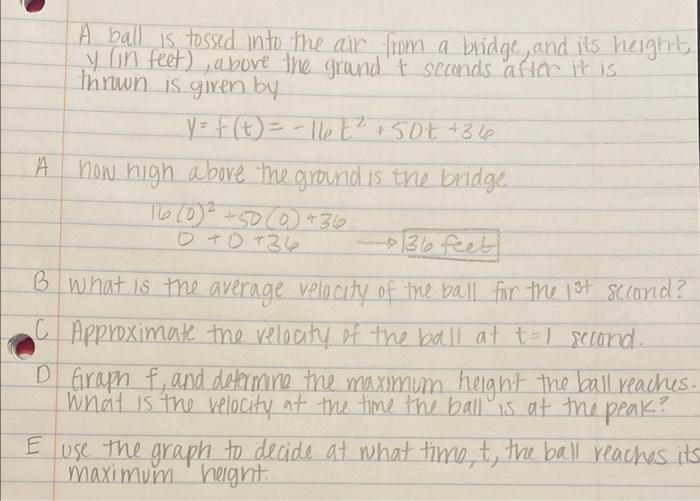 A ball is tossed into the air from a bridge, and its height,
y (in feet), above the grand t seconds after it is
thrown is given by
y = f(t) = -16t² + 50t + 36
A how high above the ground is the bridge
16(0)² + 50(0) + 36
0 + 0 + 36 → 36 feet
B What is the average velocity of the ball for the 1st second?
C Approximate the velocity of the ball at t=1 second.
D Graph f, and determine the maximum height the ball reaches.
What is the velocity at the time the ball is at the peak?
E use the graph to decide at what time, t, the ball reaches its
maximum height.